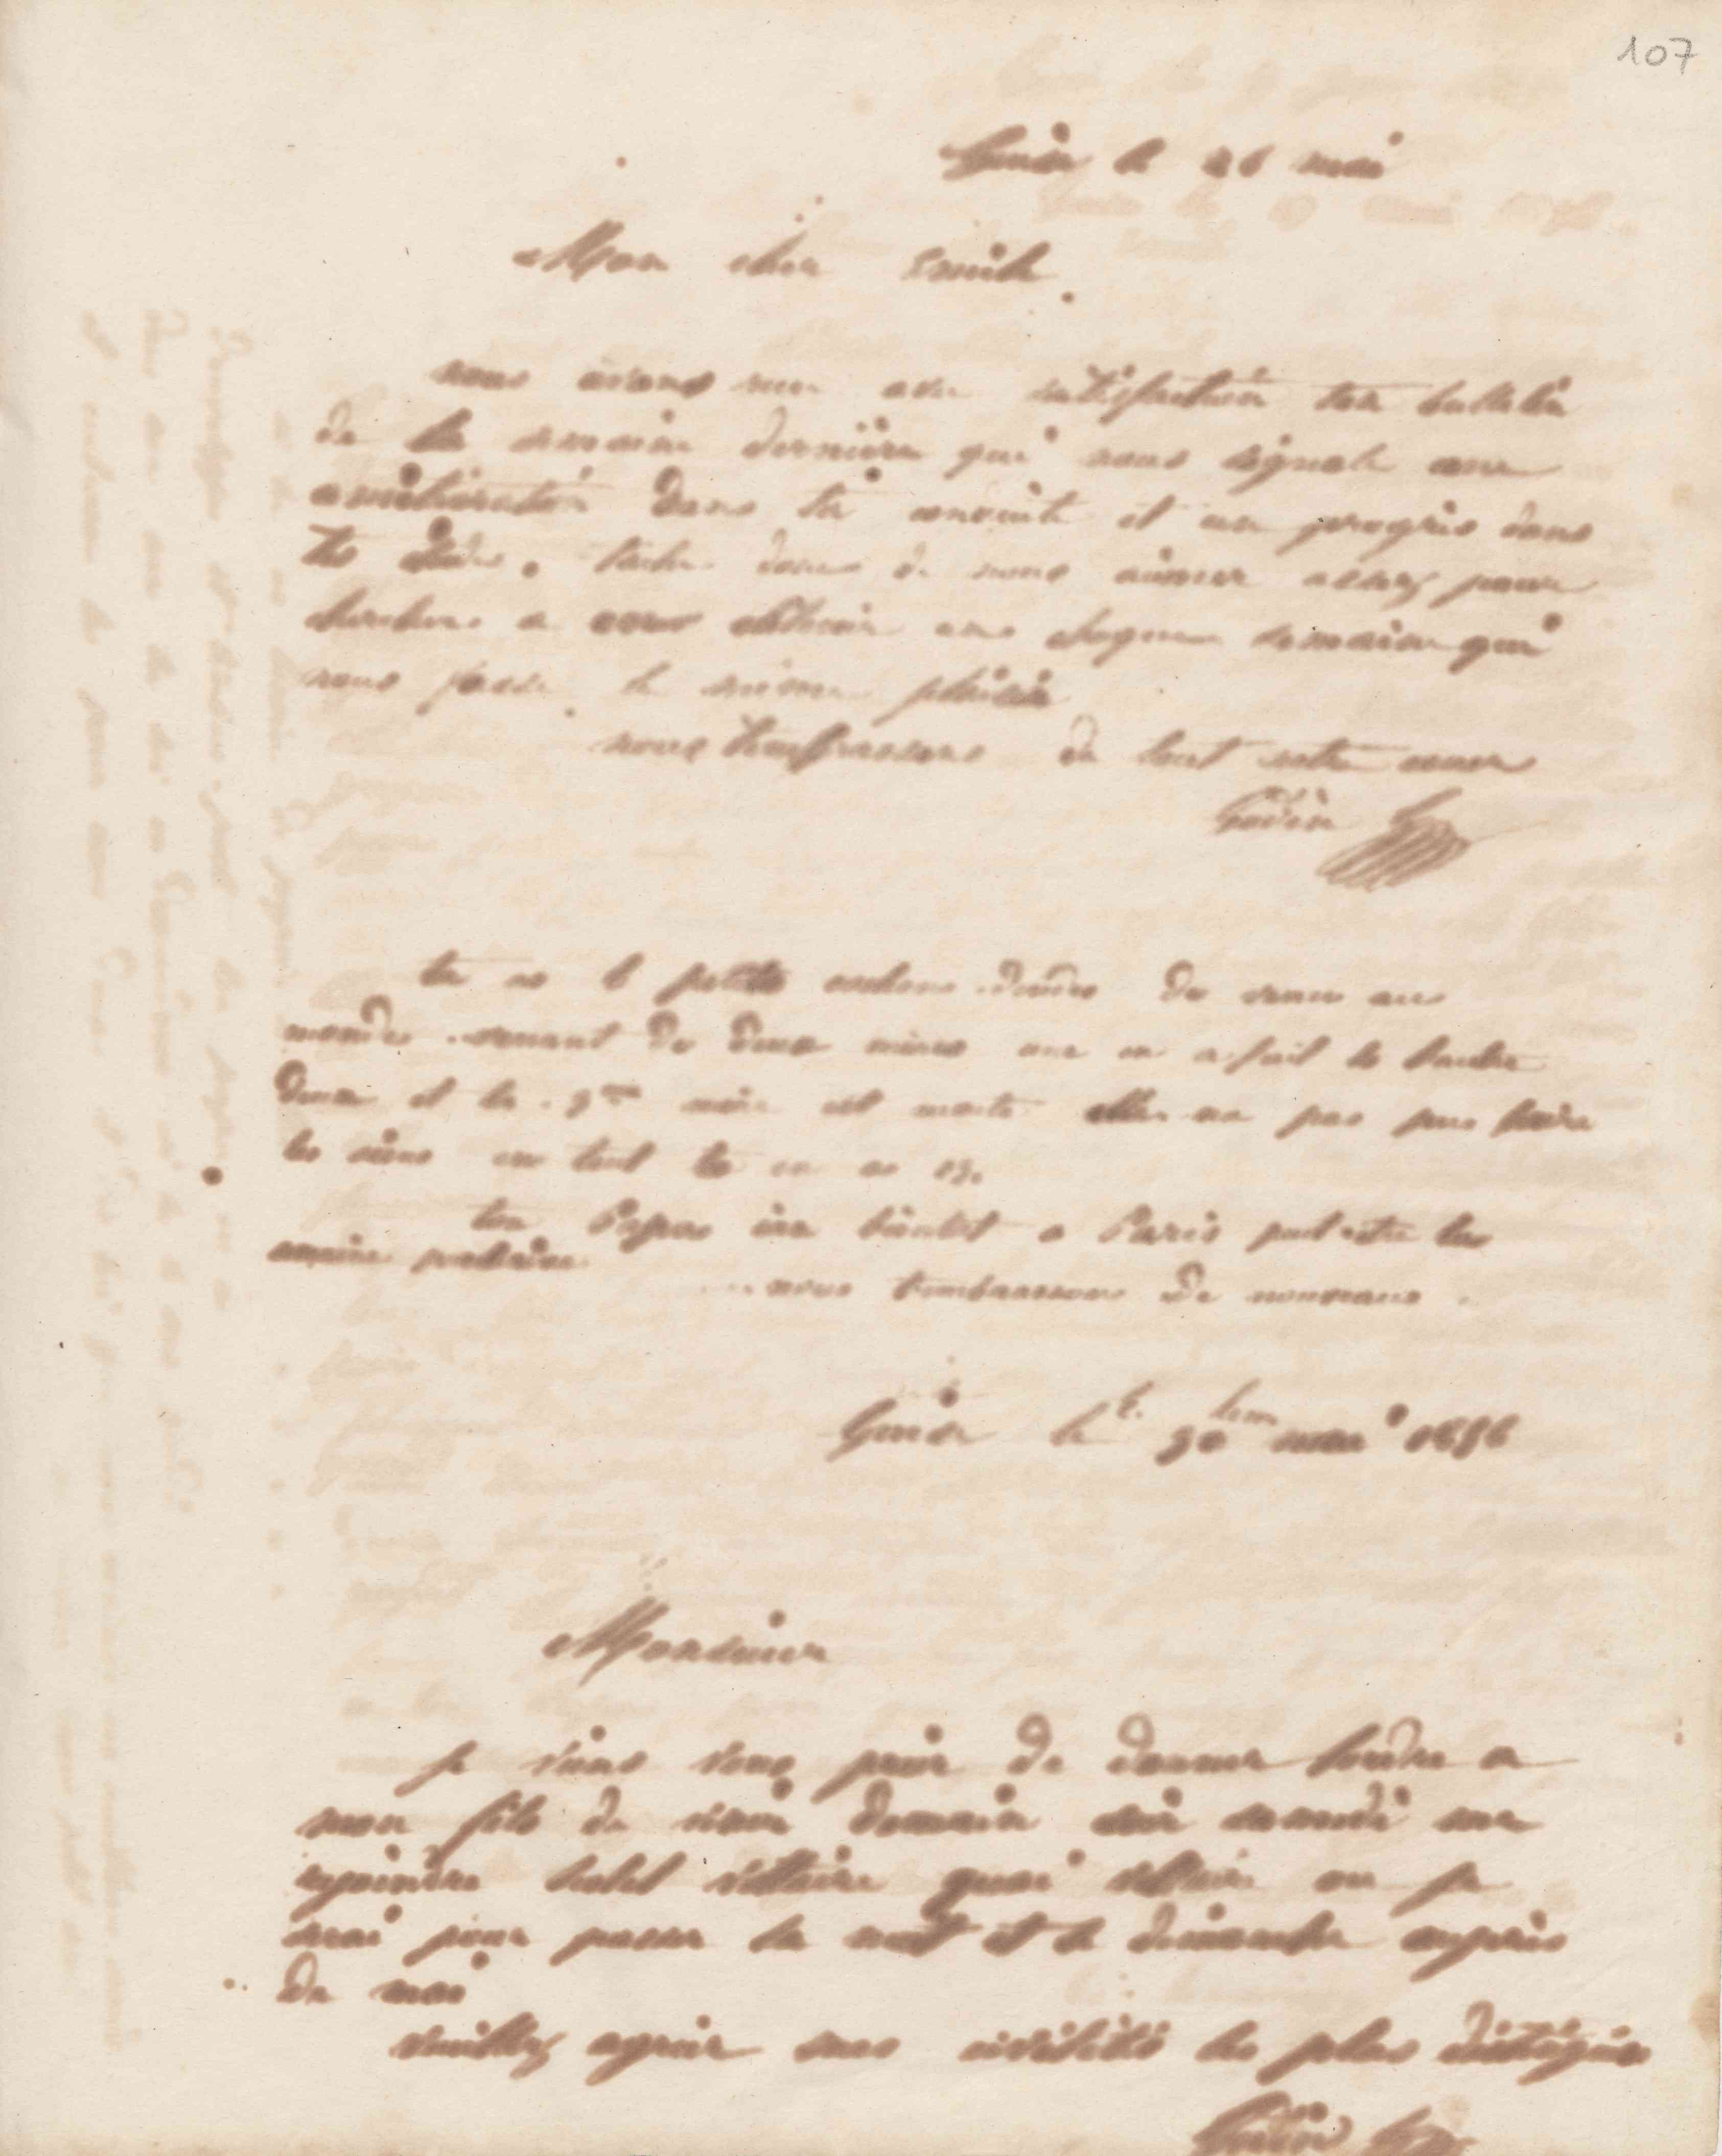 107
Guise le 26 mai
Mon cher Emile
nous avons vu avec satisfaction ton bulletin
de la semaine dernière qui nous signale une
amélioration dans ta conduite et un progrès dans
tes études. tache donc de nous aimer assez pour
chercher a obtenir un chaque semaine qui
nous fasse le même plaisir
nous t'embrassons de tout notre coeur
Godin
tu as 6 petits cochons dindes de venu au
monde venant de deux mères une en a fait
deux et la mère est morte elle na pas pu faire
les siens en tout tu en as
ton Papa ira bientot a Paris peut etre la
semaine prochaine
nous t'embrassons de nouveau
Guise le 30 mai 1856
Monsieur
je viens vous prier de donner l'ordre a
mon fils de venir demain soir samedi me
rejoindre hotel voltaire quai voltaire ou je
serai pour passer la nuit et le dimanche auprès
de moi
veuillez agréer mes civilités les plus distinguées
Godin